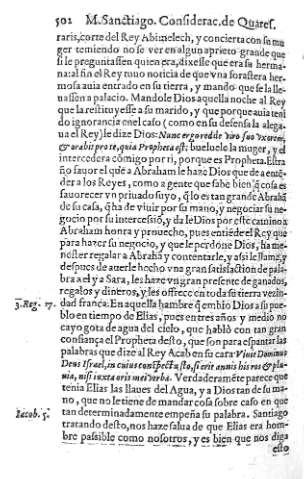 502 M. Sanctiago. Considerac. de Quares.
raris, corte del Rey Abimelech, y concierta con su mu
ger temiendo no se ver en algun aprieto grande que
si le preguntassen quien era, dixesse que era su herma-
na: al fin el Rey tuuo noticia de que vna forastera her-
mosa auia entrado en su tierra, y mando que se la lle-
uassen a palacio. Mandole Dios aquella noche al Rey
que la restituyesse a su marido, y que porque auia teni
do ignorancia en el caso (como en su defensa la alega-
ua el Rey) le dize Dios: Nunc ergo redde viro suo vxorem,
& orabit pro te, quia Propheta est: bueluele la muger, y el
intercedera cõmigo por ti, porque es Propheta. Estra
ño fauor el que a Abraham le haze Dios que de a entẽ
der a los Reyes, como a gente que sabe bien q̃ cosa es
fauorecer vn priuado suyo, q̃ lo es tan grande Abrahã
de su casa, q̃ ha de viuir por su mano, y negociar su ne-
gocio por su intercessiõ, y da le Dios por este camino a
Abraham honra y prouecho, pues entiẽde el Rey que
para hazer su negocio, y que le perdone Dios, ha me-
nester regalar a Abrahã y contentarle, y assi le llama, y
despues de auerle hecho vna gran satisfaction de pala-
bra a el y a Sara, les haze vn gran presente de ganados,
regalos y dineros, y les offrece en toda su tierra vezin-
3. Reg. 17. dad franca. En aquella hambre q̃ embio Dios a su pue-
blo en tiempo de Elias, pues en tres años y medio no
cayo gota de agua del cielo, que hablò con tan gran
confiança el Propheta desto, que son para espantar las
palabras que dize al Rey Acab en su cara Viuit Dominus
Deus Israel, in cuius conspectu sto, si erit annis his ros & plu-
uia, nisi iuxta oris mei verba. Verdaderamẽte parece que
tenia Elias las llaues del Agua, y a Dios tan de su ma-
no, que no le tiene de mandar cosa sobre caso en que
Iacob. 5. tan determinadamente empeña su palabra. Santiago
tratando desto, nos haze salua de que Elias era hom-
bre passible como nosotros, y es bien que nos diga
esto